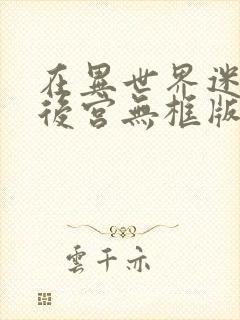 在異世界迷
後宮無框版
雲千亦